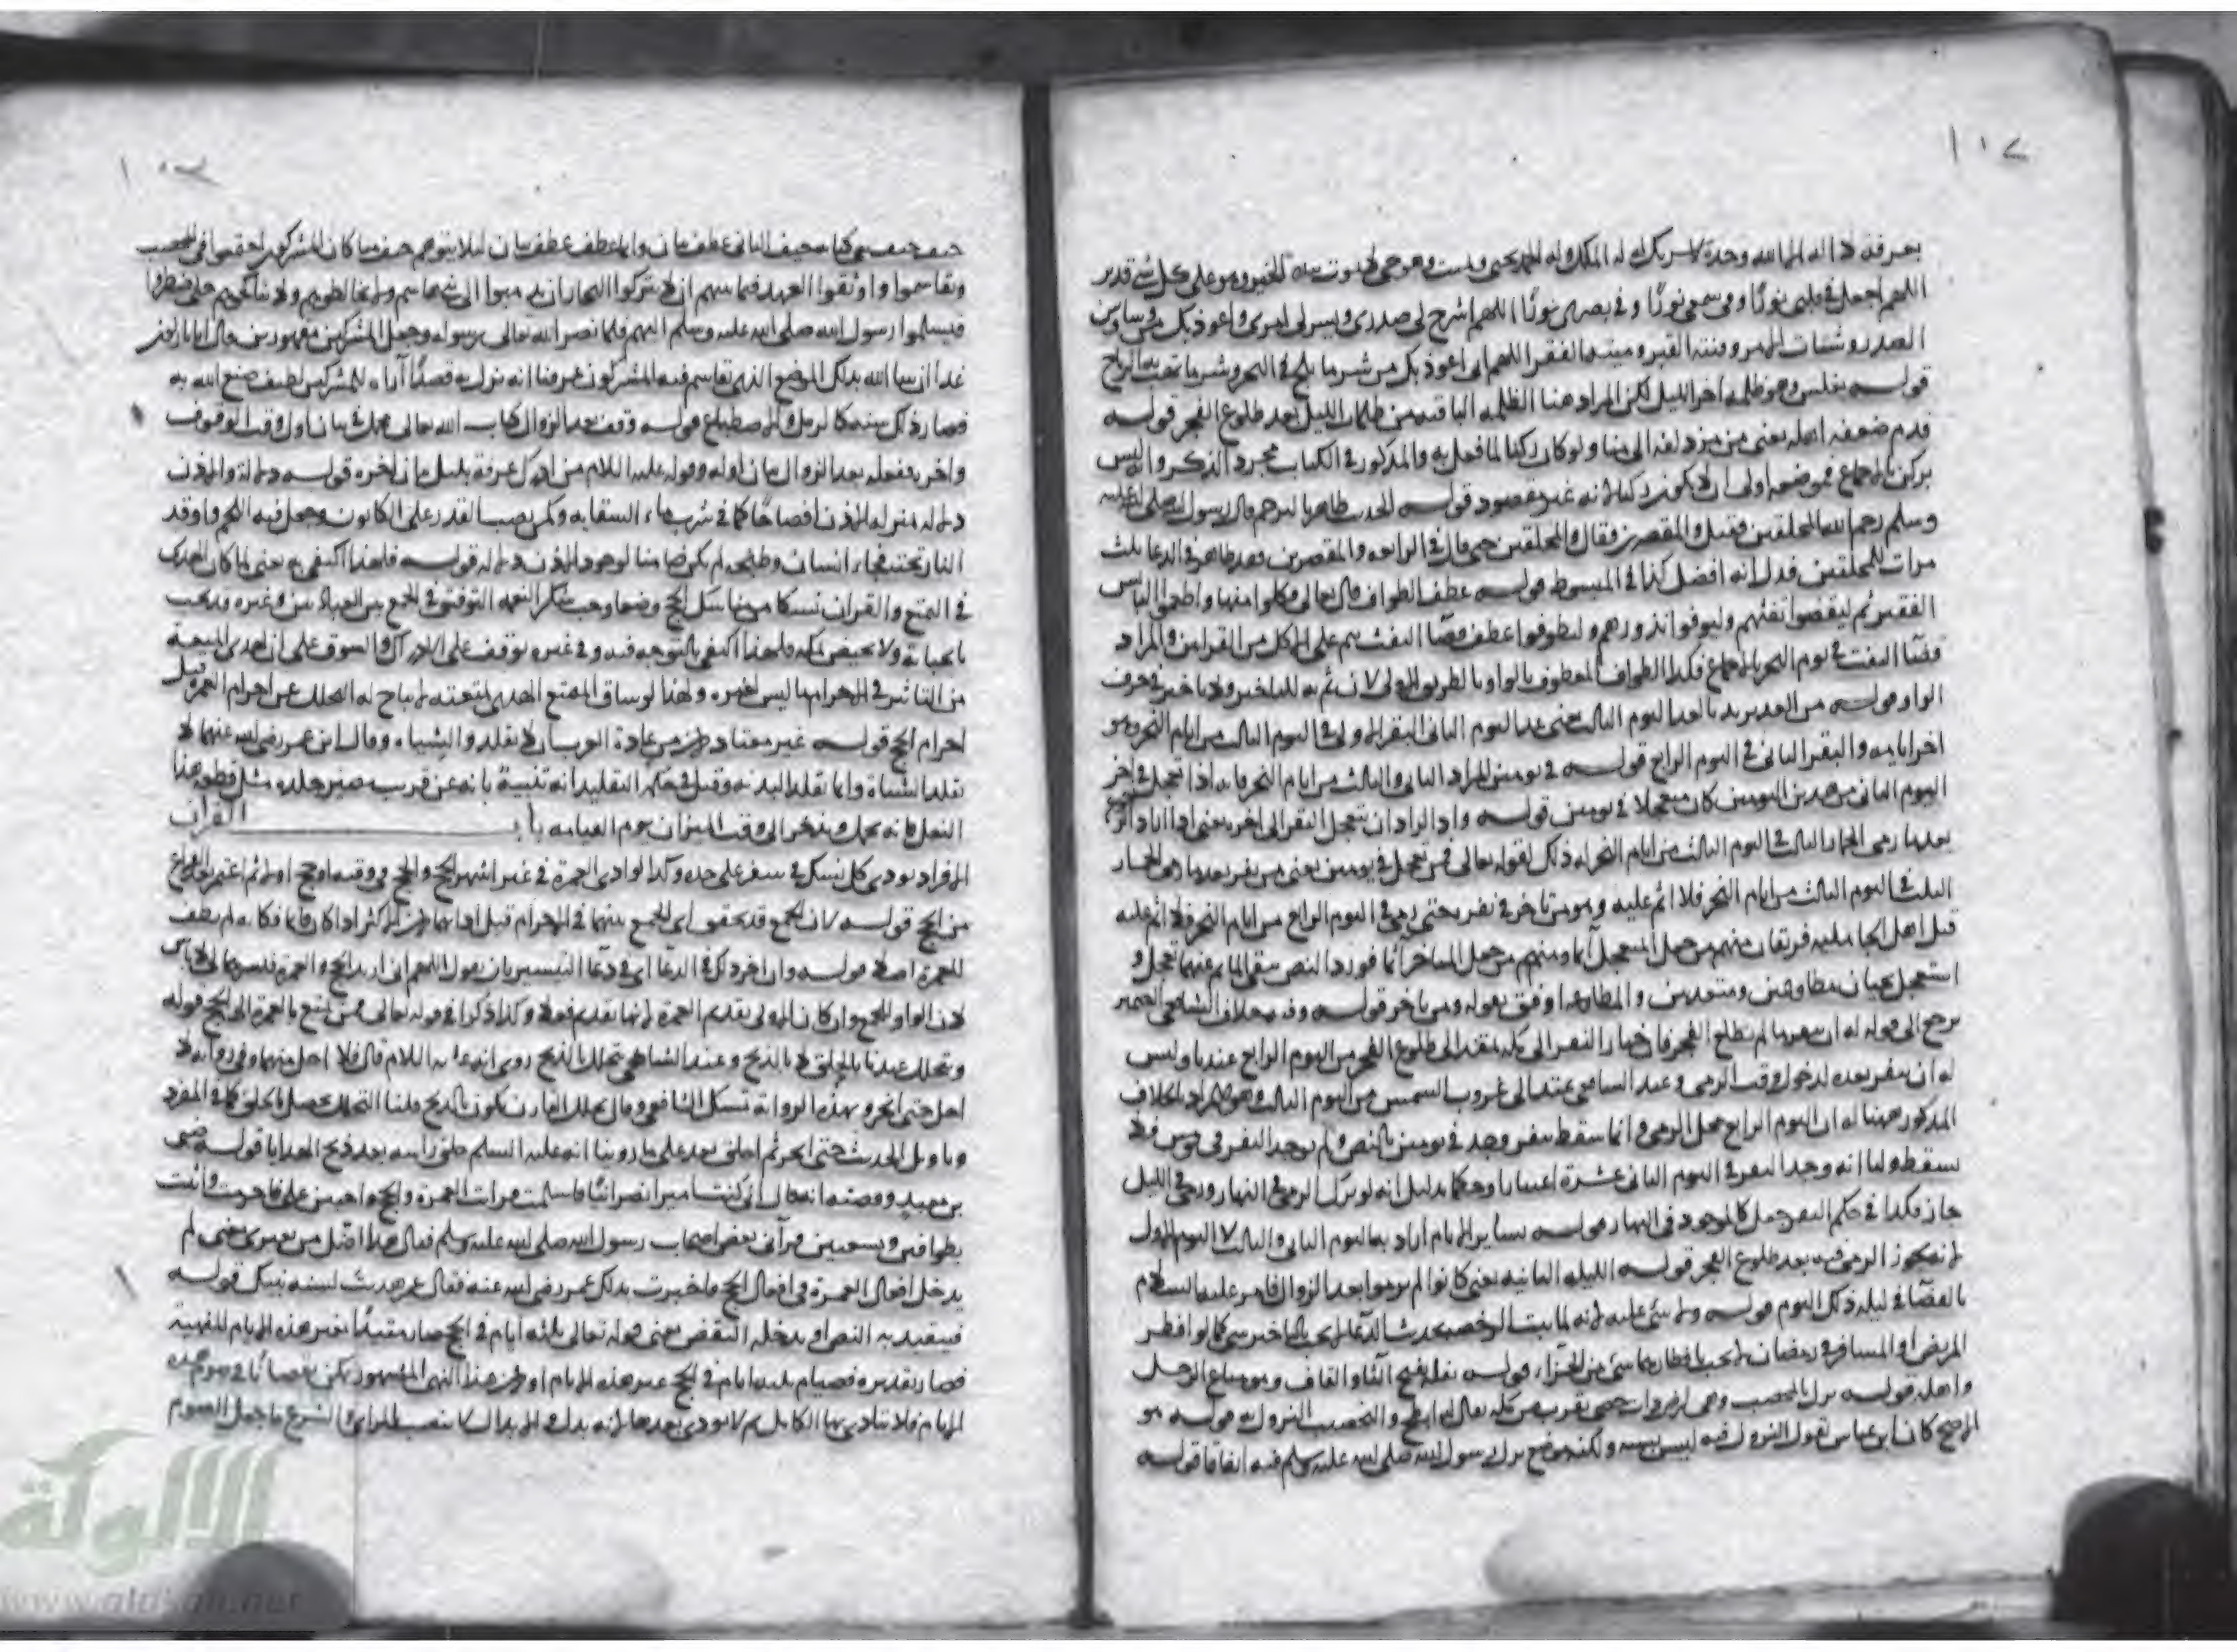 ١٠٧
بعرفة لا اله الا الله وحده لا شريك له له الملك وله الحمد يحيي ويميت وهو حي لا يموت بيده الخير وهو على كل شي قدير
اللهم اجعل في قلبي نورًا وفي سمعي نورًا وفي بصري نورًا اللهم اشرح لي صدري ويسر لي امري واعوذ بك من وساوس
الصدر وشتات الامر وفتنة القبر اللهم اني اعوذ بك من شر ما يلج في البحر وشر ما تهب به الرياح
قوله بغلس وهو ظلمة اخر الليل لكن المراد هنا الظلمة الباقية من ظلمات الليل بعد طلوع الفجر قوله
قدم ضعفه اهله يعني من مزدلفة الى منا ولو كان ركنا لما فعل به والمذكور في الكتاب مجرد الذكر وليس
بركن بالاجماع فموضعه اولى ان لا يكون ركنا لانه غير مقصود قوله الحديث ظاهر بالترحم قال رسول الله صلى الله عليه
وسلم رحم الله المحلقين فقيل والمقصرين فقال والمحلقين حتى قال في الرابعة والمقصرين فقد ظاهر في الدعا ثلث
مرات للمحلقين فدل انه افضل كذا في المبسوط قوله عطف الطواف قال تعالى فكلوا منها واطعموا البائس
الفقير ثم ليقضوا تفثهم وليوفوا نذورهم وليطوفوا عطف قضا التفث على الاكل من القرابين والمراد
قضا التفث في يوم النحر بالاجماع فكذا الطواف المعطوف بالواو بالطريق الاولى لان ثم للتاخير ولا تاخير في حرف
الواو قوله من الغد يريد بالغد اليوم الثالث يعني غد اليوم الثاني النفر الاول في اليوم الثالث من ايام النحر وهو
اخر ايامه والنفر الثاني في اليوم الرابع قوله في يومين المراد الثاني والثالث من ايام النحر فانه اذا تعجل في اخر
اليوم الثاني من هذين اليومين كان متعجلا في يومين قوله واذا اراد ان يتعجل النفر الى اخره يعني اذا اراد
بعد ما رمى الجمار الثلث في اليوم الثالث من ايام النحر له ذلك لقوله تعالى فمن تعجل في يومين يعني من نفر بعد ما رمى الجمار
الثلث في اليوم الثالث من ايام النحر فلا اثم عليه ومن تاخر في نفره حتى رمى في اليوم الرابع من ايام النحر فلا اثم عليه
قيل اهل الجاهلية فريقان منهم من جعل المتعجل آثما ومنهم من جعل المتاخر آثما فورد النص بنفي الماثم عنهما تعجل و
استعجل يجيان مطاوعين ومتعديين والمطاوعة اوفق بقوله ومن تاخر قوله وفيه خلاف الشافعي الضمير
يرجع الى قوله له ان ينفر ما لم يطلع الفجر فان خيار النفر الى مكة يمتد الى طلوع الفجر من اليوم الرابع عندنا وليس
له ان ينفر بعده لدخول وقت الرمي وعند الشافعي يمتد الى غروب الشمس من اليوم الثالث وهو المراد بالخلاف
المذكور ههنا له ان اليوم الرابع محل الرمي وانما سقط بنفر وجد في يومين بالنص ولم يوجد النفر في يومين فلا
يسقط ولنا انه وجد النفر في اليوم الثاني عشرة اعتبارا وحكما بدليل انه لو ترك الرمي في النهار ورمى في الليل
جاز فكذا في حكم النفر جعل كالموجود في النهار قوله سائر الايام اراد بها اليوم الثاني والثالث لا اليوم الاول
لانه يجوز الرمي فيه بعد طلوع الفجر قوله الليلة الثانية يعني كانوا لم يرموا بعد الزوال فامر عليه السلام
بالقضا في ليلة ذلك اليوم قوله ولا شي عليه لانه لما ثبت الرخصة بحديث الرعا لم يجب بالتاخير شي كما لو افطر
المريض او المسافر في رمضان لا يجب بافطارهما شي من الجزاء قوله ثقله بفتح الثاء والقاف وهو متاع الرجل
واهله قوله نزل بالمحصب وهي ارض ذات حصى بقرب من مكة يقال له ابطح والتحصيب النزول به قوله هو
الاصح كان ابن عباس يقول النزول فيه ليس بسنة ولكنه موضع نزل رسول الله صلى الله عليه وسلم فيه اتفاقا قوله
خيف خيف منى كما الثاني عطف بيان وانما عطف عطف بيان لئلا يتوهم خيف منا كان المشركون اجتمعوا في المحصب
وتقاسموا واوثقوا العهد فيما بينهم ان لا يتركوا
فيسلموا رسول الله صلى الله عليه وسلم اليهم فلما نصر الله تعالى رسوله وجعل المشركين مقهورين قال انا نازلون
غدا ان شا الله بذلك الموضع الذي تقاسم فيه المشركون عرفنا انه نزل به قصدًا آراءة للمشركين لطيف صنع الله به
فصار ذلك سنة كالرمل والاضطباع قوله وقف بعد الزوال كتاب الله تعالى مجمل في بيان اول وقت الوقوف
واخره ففعله بعد الزوال بيان اوله وقوله عليه السلام من ادرك عرفة بليل بيان اخره قوله دلالة والاذن
دلالة منزلة الاذن افصاحًا كما في شرب ماء السقاية وكمن نصب القدر على الكانون وجعل فيه اللحم واوقد
النار تحته فجاء انسان وطبخه لم يكن ضامنا لوجود الاذن دلالة قوله فلهذا اكتفى به يعني لما كان الهدي
في التمتع والقران نسكا من مناسك الحج وضعا وجب شكر النعمة التوفيق في الجمع بين العبادتين وغيره قد يجب
بالجناية ولا يختص بمكة فلهذا اكتفى بالتوجه فيه وفي غيره توقف على الادراك والسوق على ان لهدي المتعة
من التاثير في الاحرام ما ليس لغيره ولهذا لو ساق المتمتع الهدي لمتعته لا يباح له التحلل عن احرام العمرة قبل
احرام الحج قوله غير معتاد لان من عادة العرب ان لا يقلدوا الشاء وقال ابن عمر رضي الله عنهما لا
تقلد الشاة وانما تقلد البدنة وقيل في حكم التقليد انه تنبيه بانه عن قريب صير جلده مثل قطعة هذا
النعل فانه يحمل ويدخر الى وقت الميزان يوم القيامة باب القران
الافراد يودي كل نسك في سفر على حده وكذا لو ادى العمرة في غير اشهر الحج والحج في وقته او حج اولا ثم اعتمر بعد الفراغ
من الحج قوله لان الجمع قد تحقق اى الجمع بينهما في الاحرام قبل ادائهما لان الاكثر اذا كان قايما فكانه لم يطف
للعمرة اصلا قوله وان اخر ذكره في الدعا اى في دعا التيسير بان يقول اللهم اني اريد الحج والعمرة فيسرهما لي لا باس
لان الواو للجمع وان كان الاولى تقديم العمرة لانها تقديم فعلا وكذا ذكرا في قوله تعالى فمن تمتع بالعمرة الى الحج قوله
وتحلل عندنا بالحلق لا بالذبح وعند الشافعي يتحلل بالذبح روي انه عليه السلام قال فلا احل منهما وفي رواية لا
احل حتى انحر وبهذه الرواية تمسك الشافعي وقال تحلل القارن يكون بالذبح قلنا التحلل يحصل بالحلق كما في المفرد
وتاويل الحديث حتى انحر ثم احلق بعد على ما روينا انه عليه السلم حلق راسه بعد ذبح الهدايا قوله صبي
بن معبد وقصته انه قال اني كنت اميرا نصرانيًا فاسلمت قرات العمرة والحج
بطوافين وسعيين فرآني بعض اصحاب رسول الله صلى الله عليه وسلم فقال هذا اضل من بعيره يعني لم
يدخل افعال العمرة في افعال الحج فاخبرت بذلك عمر رضي الله عنه فقال عمر هديت لسنة نبيك قوله
فيتقيد به النص او يدخله النقص يعني قوله تعالى ثلثه ايام في الحج صار مقيدًا بغير هذه الايام للنهي
فصار تقديره فصيام ثلثه ايام في الحج غير هذه الايام اولان هذا النهي المشهور تمكن نقصانًا في صوم هذه
الايام فلا تتادى بها الكامل ثم لا يودي بعدها لانه بدل والابدال لا تنصب بالراي والشرع ما جعل الصوم
الالوكة
www.alukah.net